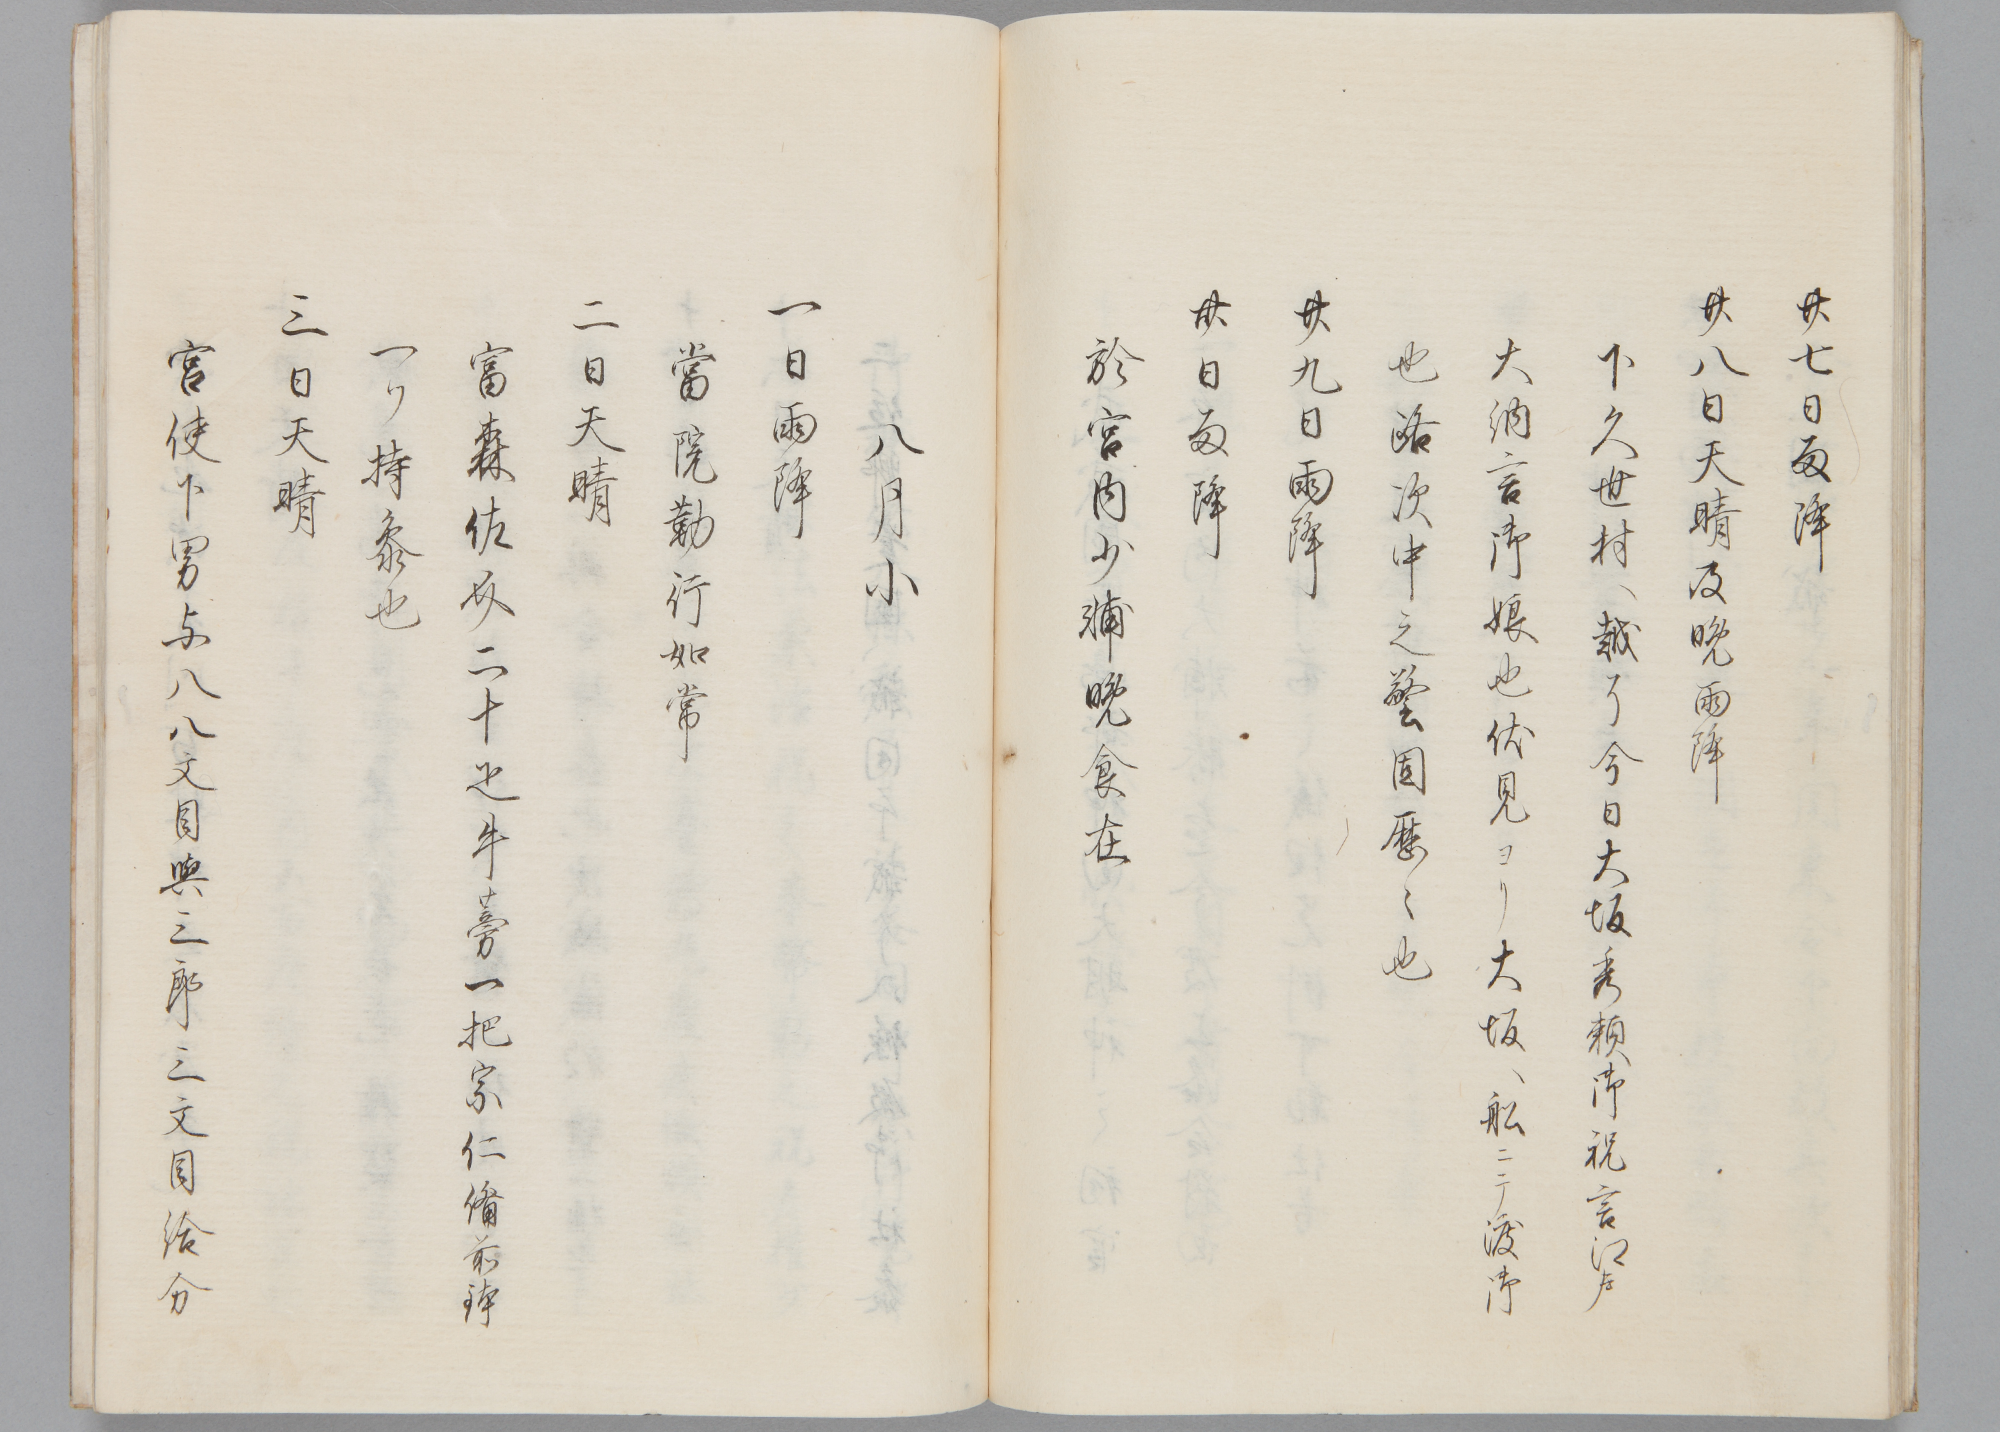 廿七日雨降
廿八日天晴及晩雨降
下久世村ヘ越了今日大坂秀頼御祝言江戸
大納言御娘也伏見ヨリ大坂ヘ舩ニテ渡御
也路次中之警固歴々也
廿九日雨降
卅日雨降
於宮内少輔晩食在
八月小
一日雨降
當院勤行如常
二日天晴
富森佐炊二十疋牛蒡一把宗仁備前鉢
一ツ持参也
三日天晴
宮使下男与八八文目與三郎三文目給分